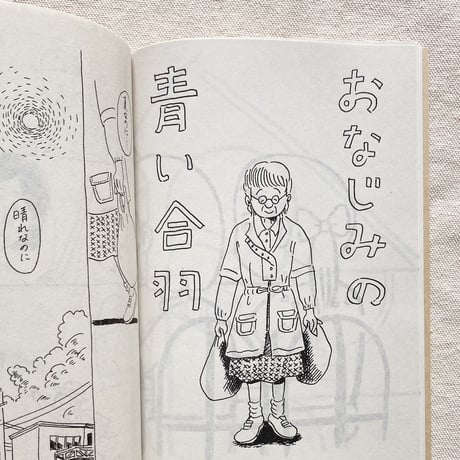 おなじみの
青い合羽
晴れなのに